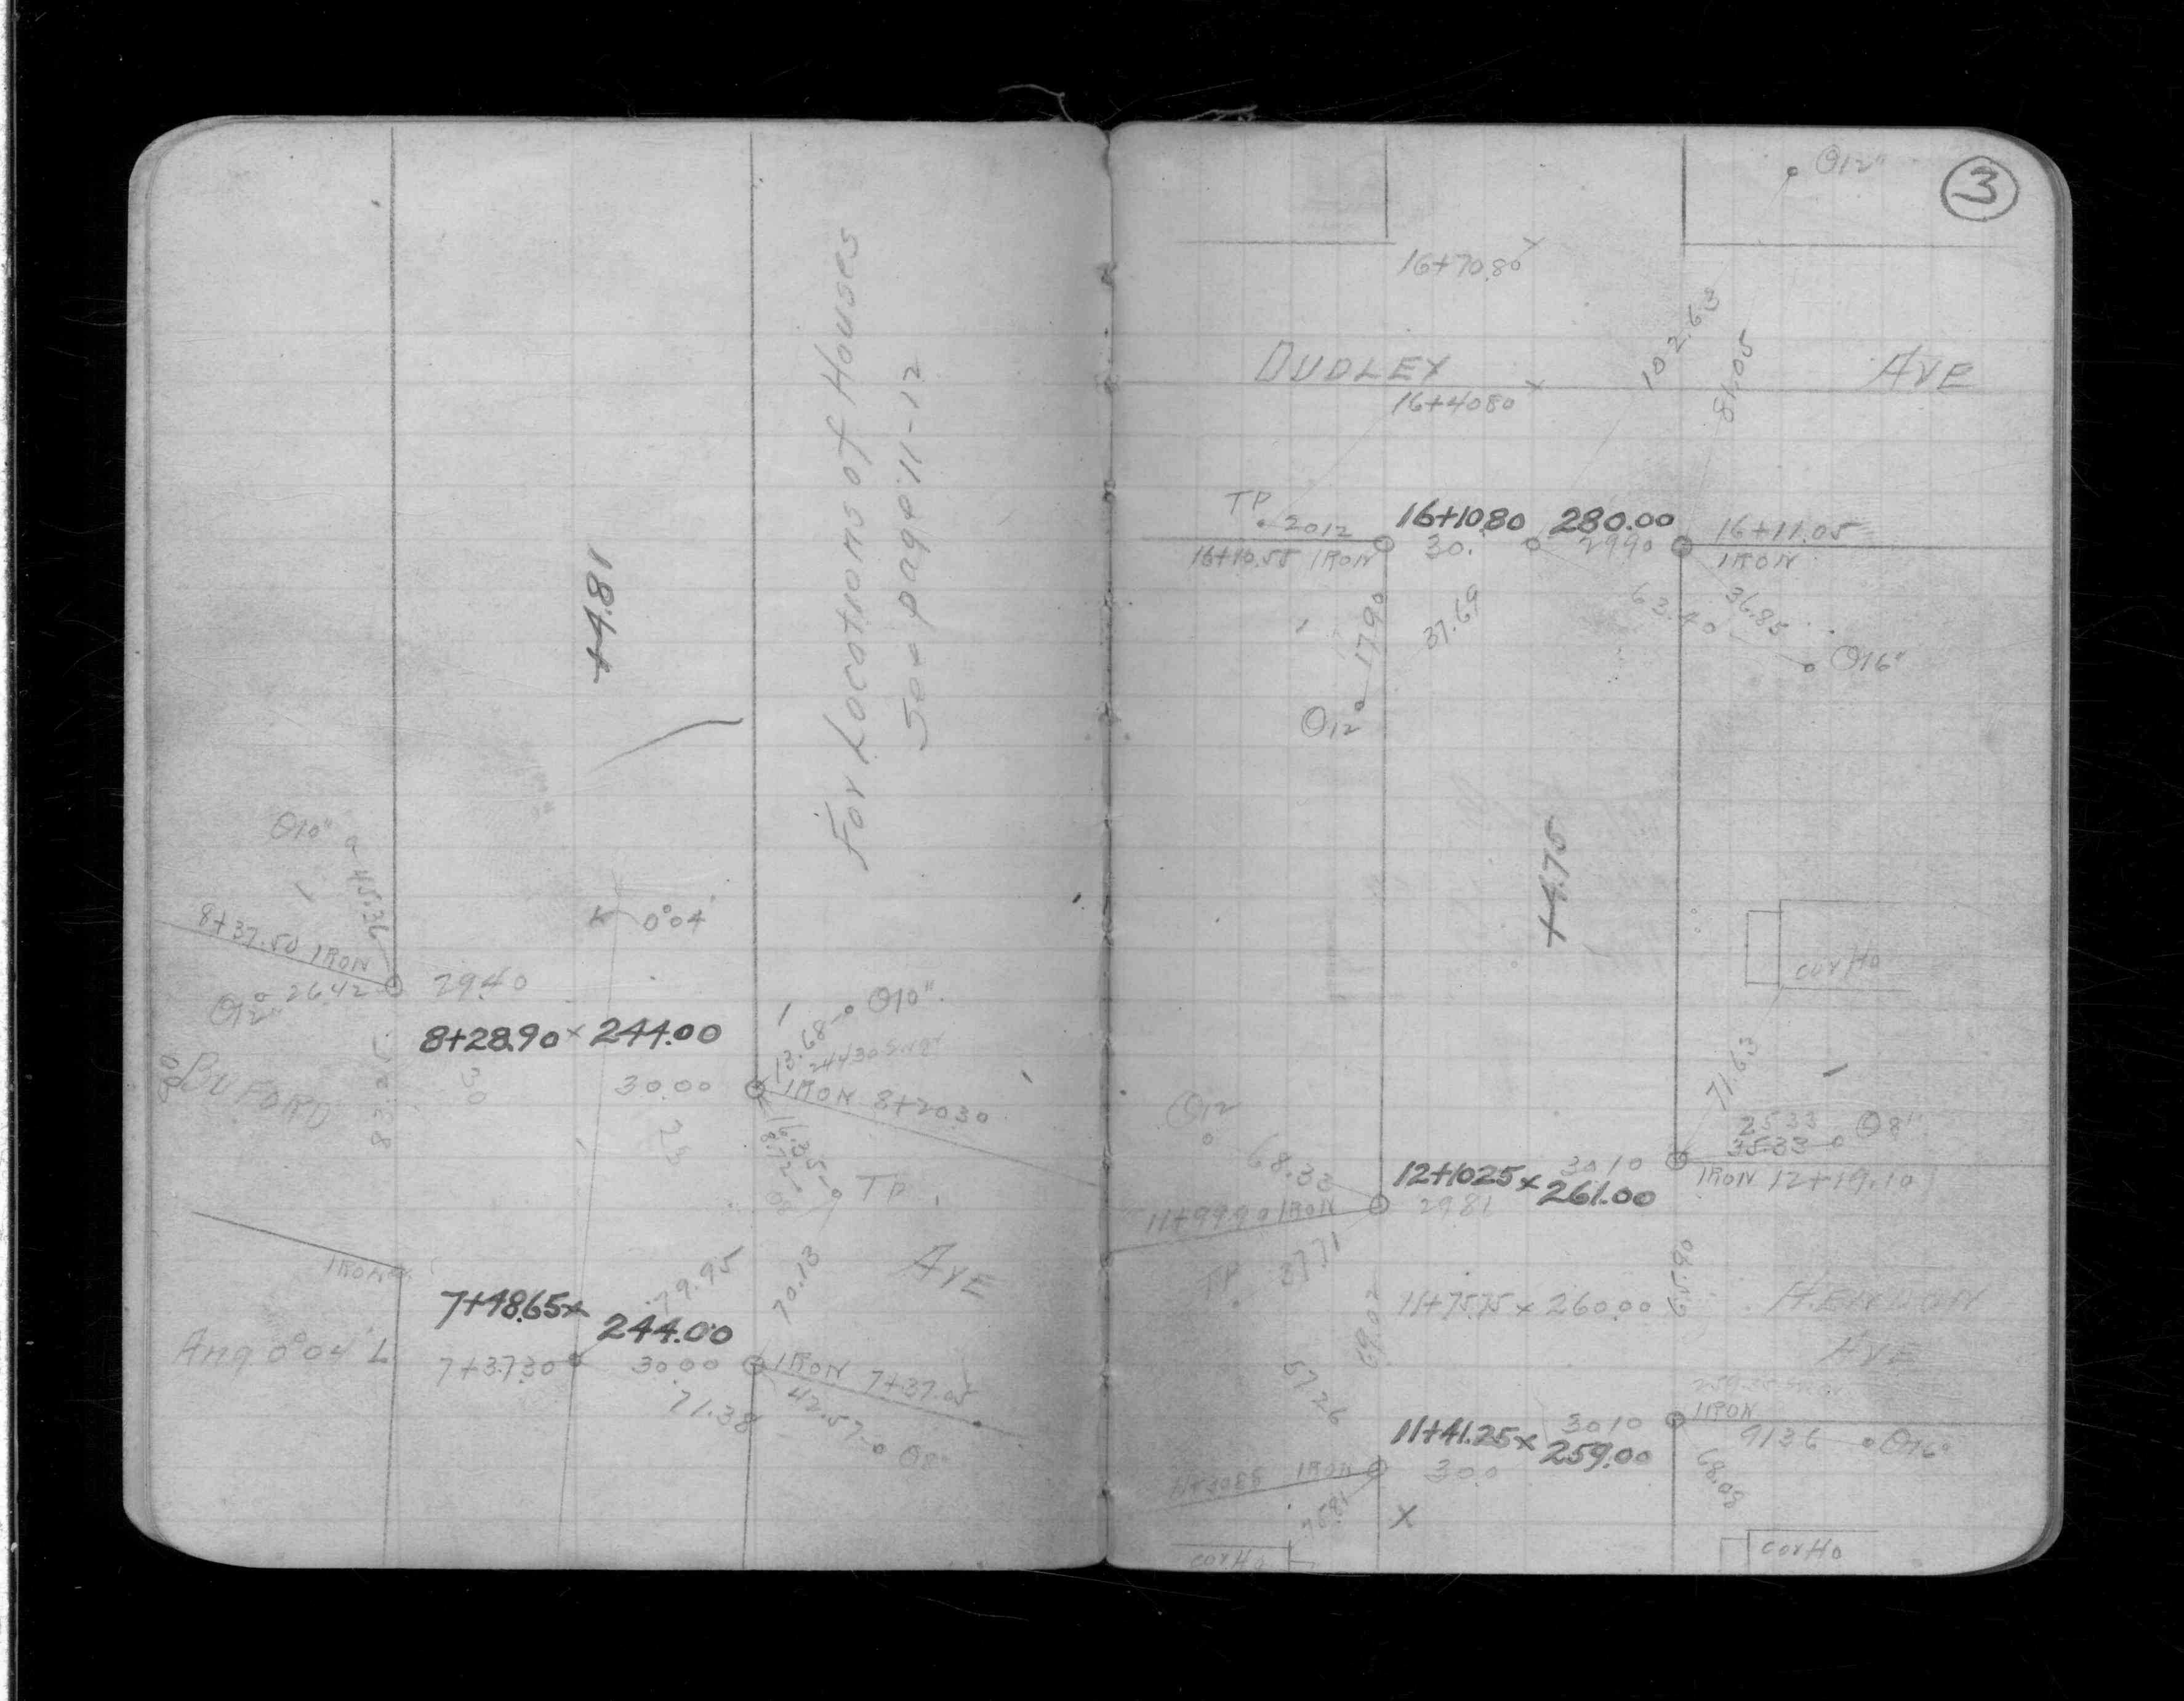 For Locations of Houses
See page 11-12
+4.81
Θ10"
45.36
8+37.50 IRON
Θ12"
26.42
29.40
0°04'
8+28.90 x 244.00
BUFORD
83.25
30
30.00
13.68
Θ10"
IRON 8+20.30
25
16.35
TP
AVE
IRON
7+48.65 x
244.00
79.95
70.13
Ang 0°04' L
7+37.30
30.00
IRON 7+37.05
71.38
42.57
Θ8"
3
Θ12"
16+70.80
DUDLEY AVE
16+40.80
102.63
81.05
TP
20.12
16+10.80 280.00
16+11.05
16+10.55 IRON
30.
29.90
IRON
17.90
37.69
63.40
36.85
Θ16"
Θ12"
+4.75
cor Ho
71.63
Θ12
25.33
35.33
Θ8"
68.33
12+10.25 x 261.00
30.10
IRON 12+19.10
11+99.90 IRON
29.81
TP
37.71
69.02
65.90
11+75.75 x 260.00
HENDON
AVE
57.26
11+41.25 x 259.00
30.10
IRON
91.36
Θ16"
IRON
30.0
68.08
75.81
X
cor Ho
cor Ho